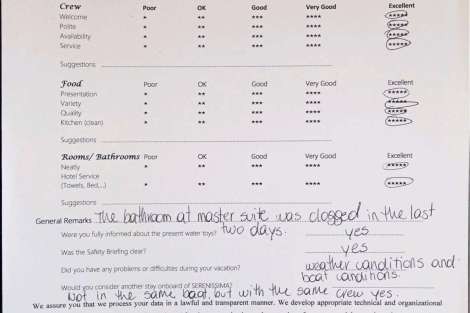 Crew Poor OK Good Very Good Excellent
Welcome * ** *** **** *****
Polite * ** *** **** *****
Availability * ** *** **** *****
Service * ** *** **** *****
Suggestions
Food Poor OK Good Very Good Excellent
Presentation * ** *** **** *****
Variety * ** *** **** *****
Quality * ** *** **** *****
Kitchen (clean) * ** *** **** *****
Suggestions
Rooms/ Bathrooms Poor OK Good Very Good Excellent
Neatly * ** *** **** *****
Hotel Service
(Towels, Bed,..) * ** *** **** *****
Suggestions
General Remarks The bathroom at master suite was clogged in the last
two days.
Were you fully informed about the present water toys? yes
Was the Safety Briefing clear? yes
Did you have any problems or difficulties during your vacation? weather conditions and
boat conditions.
Would you consider another stay onboard of SERENISSIMA?
Not in the same boat, but with the same crew yes.
We assure you that we process your data in a lawful and transparent manner. We develop appropriate technical and organizational